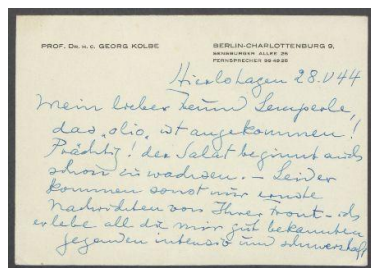 PROF. DR. H. C. GEORG KOLBE
BERLIN-CHARLOTTENBURG 9,
SENSBURGER ALLEE 26
FERNSPRECHER
Hierlshagen 28.V 44
Mein lieber Freund Lemperle,
das „olio„ ist angekommen!
Prächtig! der Salat beginnt auch
schon zu wachsen. – Leider
kommen sonst nur ernste
Nachrichten von Ihrer Front – ich
erlebe all die mir gut bekannten
Gegenden intensiv und schmerzhaft